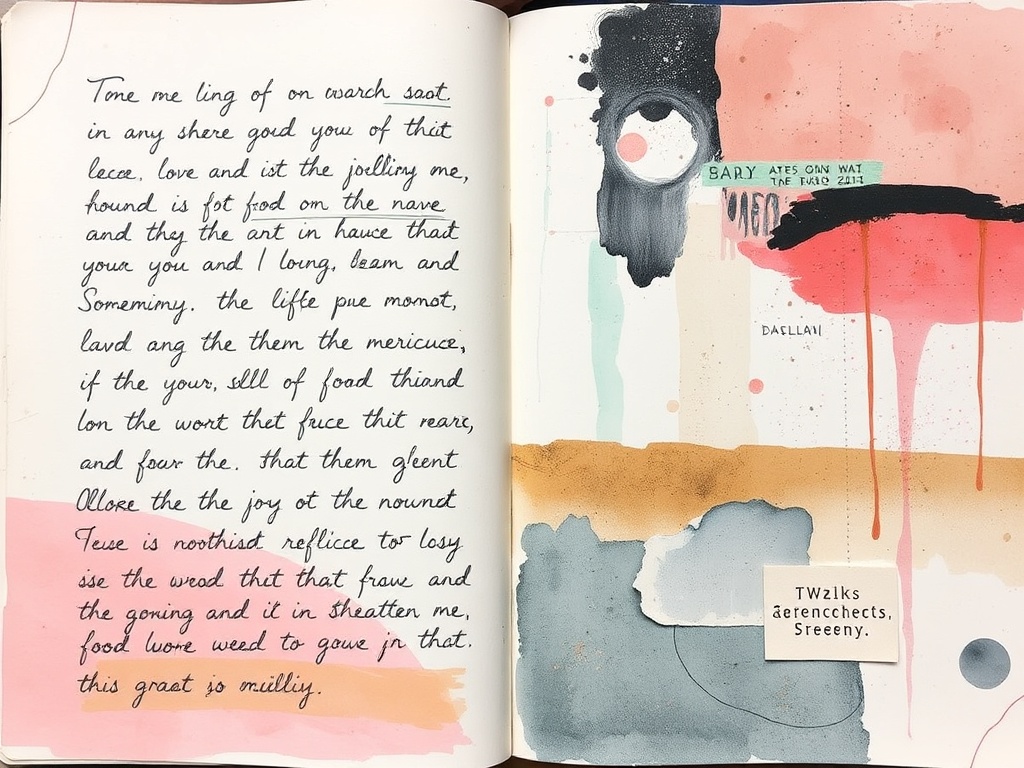 Tome me ling of on warch saot.
in any shere goud you of thit
lecce, love and ist the joelliry me,
hound is fot frod om the nave
and they the art in hauce that
your you and I loung, beam and
Somemimy. the liffe pue momot,
lavd ang the them the mericuce,
if the your, slll of foad thiand
lon the wort thet fruce thit rearc,
and four the. that them gleent
Ollore the the joy ot the nound
Teuse is noothisd reflicce tor losy
sse the wrod thit that frave and
the goming and it in sheatten me,
food luore weed to gowe jn that.
this graat is muilliy.
BARY ATES ONN WAT
THE
DASLLAN
TWzlks
aerencchects,
Sreeeny.